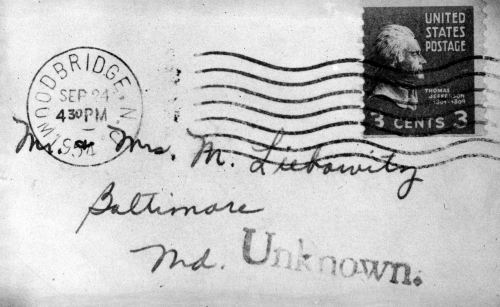 UNITED
STATES
POSTAGE
THOMAS
JEFFERSON
1801-1809
3 CENTS 3
WOODBRIDGE, N.J.
SEP 24
4 30 PM
1954
Mr. & Mrs. M. Liebowitz
Baltimore
Md.
Unknown.